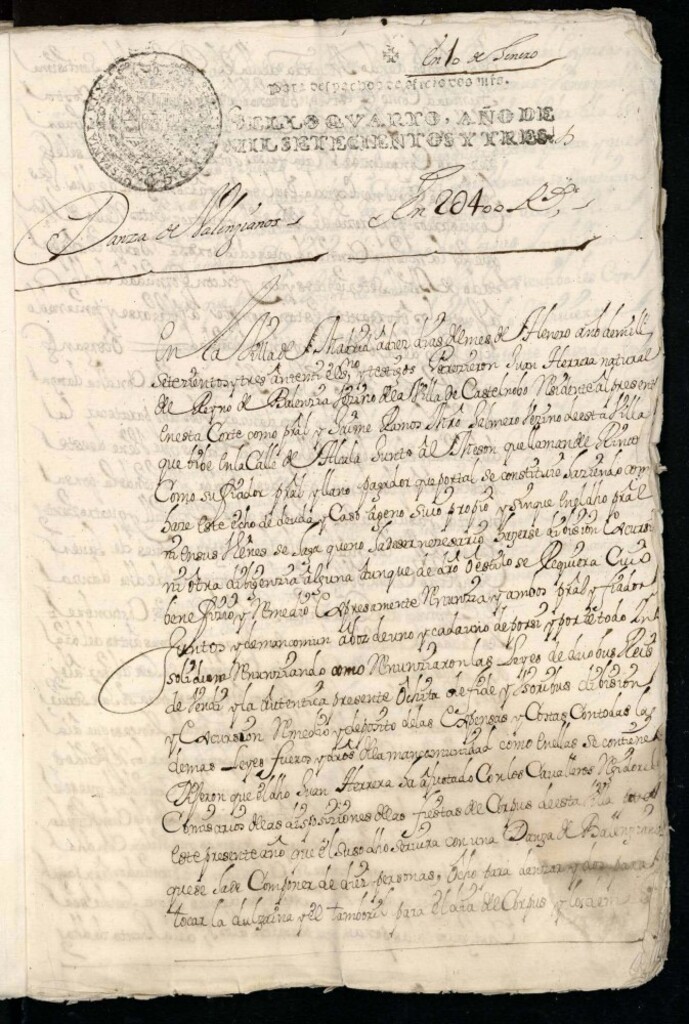 En 10 de henero
Para despachos de oficio dos mrs.
SELLO QVARTO, AÑO DE
MIL SETECIENTOS Y TRES
Danza de Valenzianos
En 20400 Rs
En la Villa de Madrid a diez dias del mes de Henero año de mill
setezientos y tres ante mi el ssno y testigos Parezieron Juan Herrera natural
del Reyno de Balenzia Vezino de la Villa de Castelnobo Residente al presente
en esta Corte como pral y Jayme Ramos Mro Salmero Vezino de esta Villa
que bibe en la Calle de Alcala Junto al Meson que llaman del
Como su fiador pral y llano pagador que por tal se constituio haziendo como
haze de este echo de deuda y Caso ageno suio propio y sin que en el dho pral
ni en sus vienes se haga que no ha de ser nezesario hazerse dibision excursion
ni otra dilixenzia alguna aunque de dro o estilo se Requiera Cuio
benefizio y Remedio Expresamente Renunzia y ambos pral y fiador
Juntos y de mancomun a boz de uno y cada uno de por si y por el todo In
solidum Renunziando como Renunziaron las Leyes de duobus Reis
de bendi y la autentica presente Ochita de fide y Jsoribus dibision
y Excursion Remedio y deposito de las Expensas y Costas Con todas las
demas Leyes fueros y dros de la mancomunidad como en ellas se contiene
Dijeron que el dho Juan Herrera ha ajustado Con los Cavalleros Rexidores
Comisarios de las disposiziones de las fiestas de Corpus de esta Villa
este presente año que el suso dho serbira con una Danza de Balenzianos
que se ha de Componer de diez personas, Ocho para danzar y dos para
tocar la dulzaina y el tamboril para el dia del Corpus y los demas